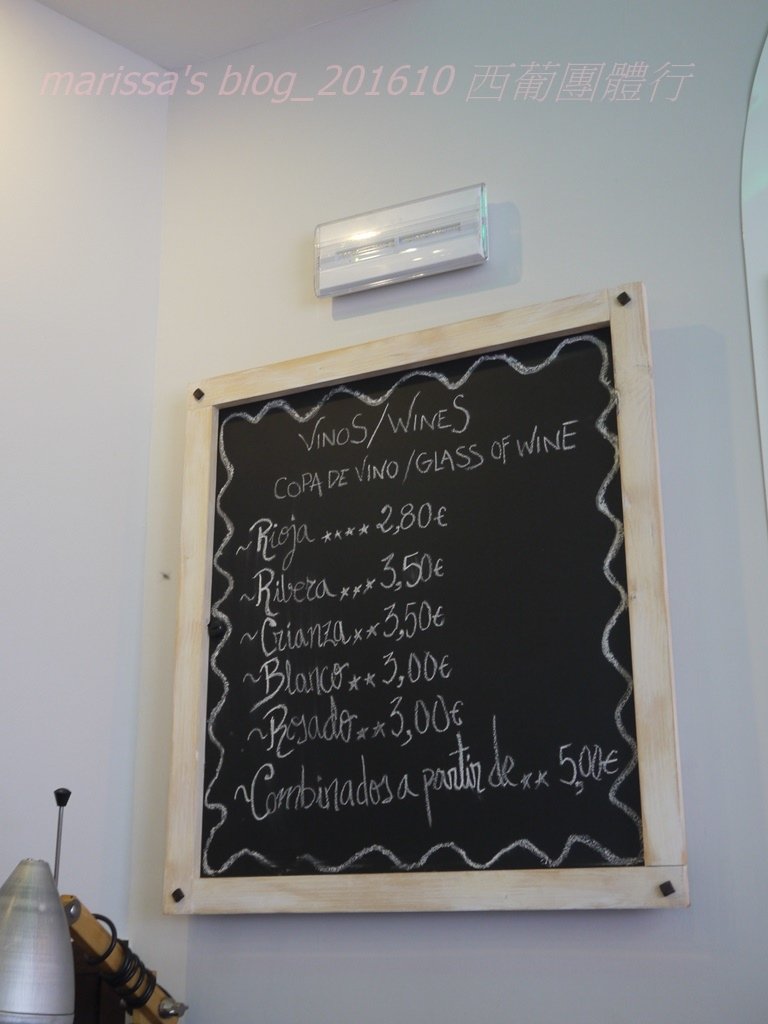 marissa's blog_201610 西葡團體行
VINOS/WINES
COPA DE VINO/GLASS OF WINE
~Rioja **** 2,80€
~Ribera *** 3,50€
~Crianza ** 3,50€
~Blanco ** 3,00€
~Rosado ** 3,00€
~Combinados a partir de ** 5,00€